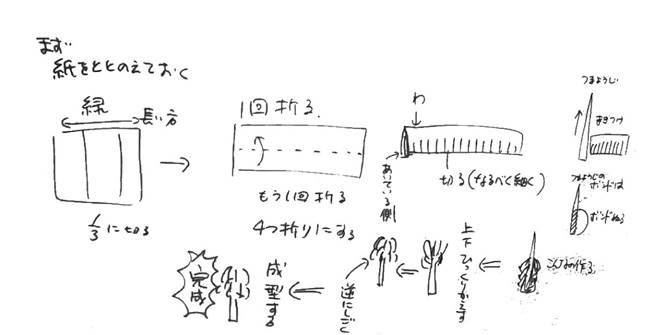 まず
紙をととのえておく
緑
長い方
1/3に切る
1回折る.
もう1回折る
4つ折りにする
わ
あいている側
切る(なるべく細く)
つまようじ
まきつけ
つまようじの
ボンドぬる
こんなの作る
上下ひっくりかえす
逆にしごく
成型する
完成